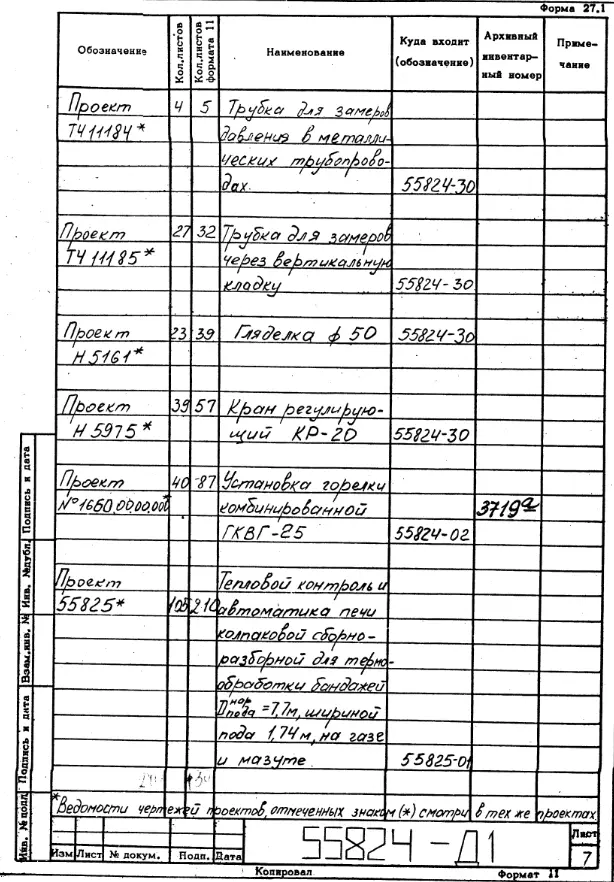 Форма 27.1
Обозначение Кол.листов Кол.листов формата 11 Наименование Куда входит (обозначение) Архивный инвентарный номер Примечание
Проект 4 5 Трубка для замеров
ТЧ 11184* давления в металли-
ческих трубопрово-
дах. 55824-30
Проект 27 32 Трубка для замеров
ТЧ 11185* через вертикальную
кладку 55824-30
Проект 23 39 Гляделка ф 50 55824-30
Н 5161*
Проект 39 57 Кран регулирую-
Н 5975* щий КР-20 55824-30
Проект 40 87 Установка горелки
№1650.00.00.000* комбинированной 3719а
ГКВГ-25 55824-02
Проект Тепловой контроль и
55825* 105 210 автоматика печи
колпаковой сборно-
разборной для термо-
обработки бандажей
Dнар пода = 7,7м, шириной
пода 1,74 м, на газе
и мазуте 55825-01
*Ведомости чертежей проектов, отмеченных знаком (*) смотри в тех же проектах.
Инв. № подл. Подпись и дата Взам.инв. № Инв. №дубл. Подпись и дата
55824-Д1
Лист
7
Изм Лист № докум. Подп. Дата
Копировал Формат 11